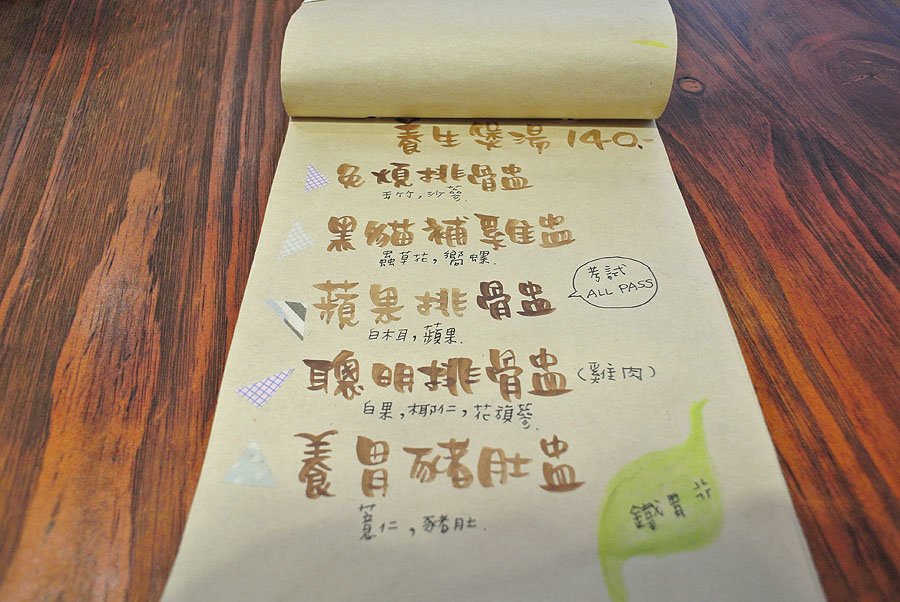 養生煲湯 140.-
免煩排骨盅
玉竹,沙蔘.
黑貓補雞盅
蟲草花,響螺.
考試
ALL PASS
蘋果排骨盅
白木耳,蘋果.
聰明排骨盅(雞肉)
白果,椰仁,花旗蔘.
養胃豬肚盅
薏仁,豬肚.
鐵胃